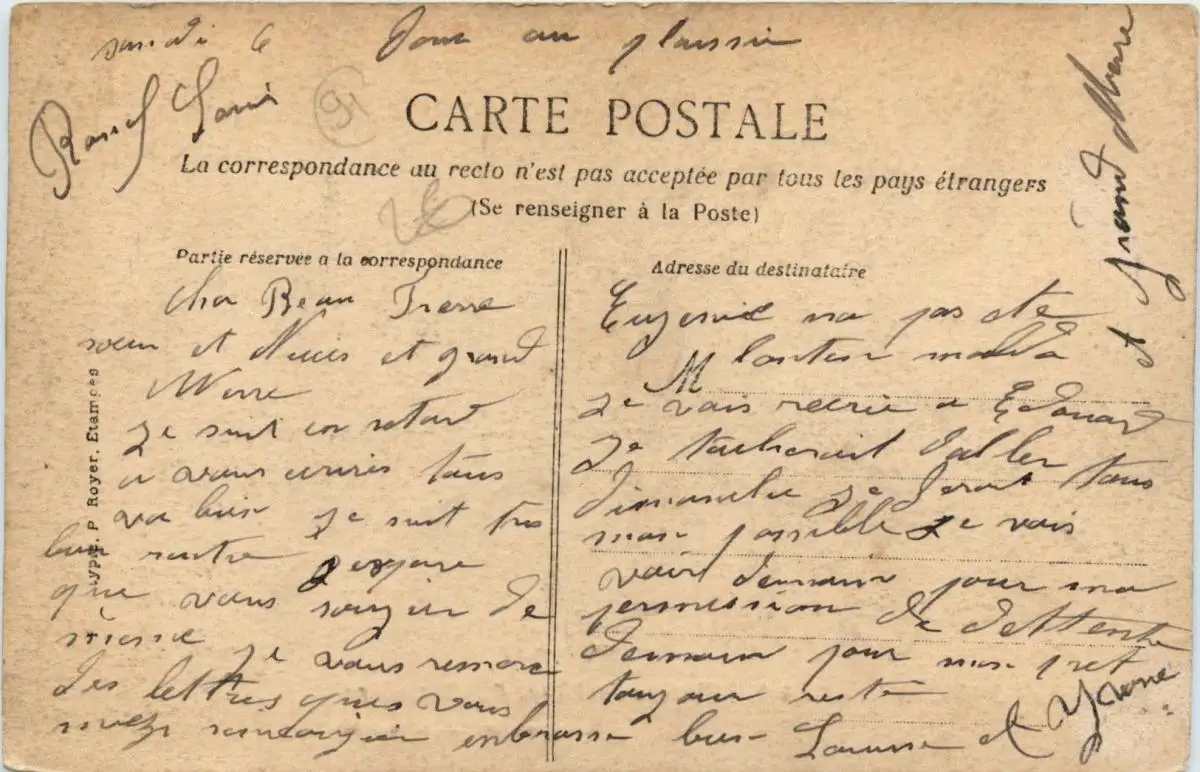 samedi 6 Jour au plaissir
Louis
91
CARTE POSTALE
La correspondance au recto n'est pas acceptée par tous les pays étrangers
(Se renseigner à la Poste)
Partie réservée a la correspondance
Cher Beau Frerre
soeur et Nieis et grand
Merre
je suit en retard
a vous
tous
va bien je suit tres
bien rentre
que vous soyier de
meme je vous remerc
des lettres ques vous
mavez embrasse bien Lousse et Yvone
Adresse du destinataire
Eugenie ma pas ete
M malda
je vais a Edouard
je tacherait daller
dimanche je ferait tous
mon possible je vais
voir demain pour ma
permission de dettente
demain pour mon pret
toujour reste
et grand Mere
Typ. P. Royer, Etampes